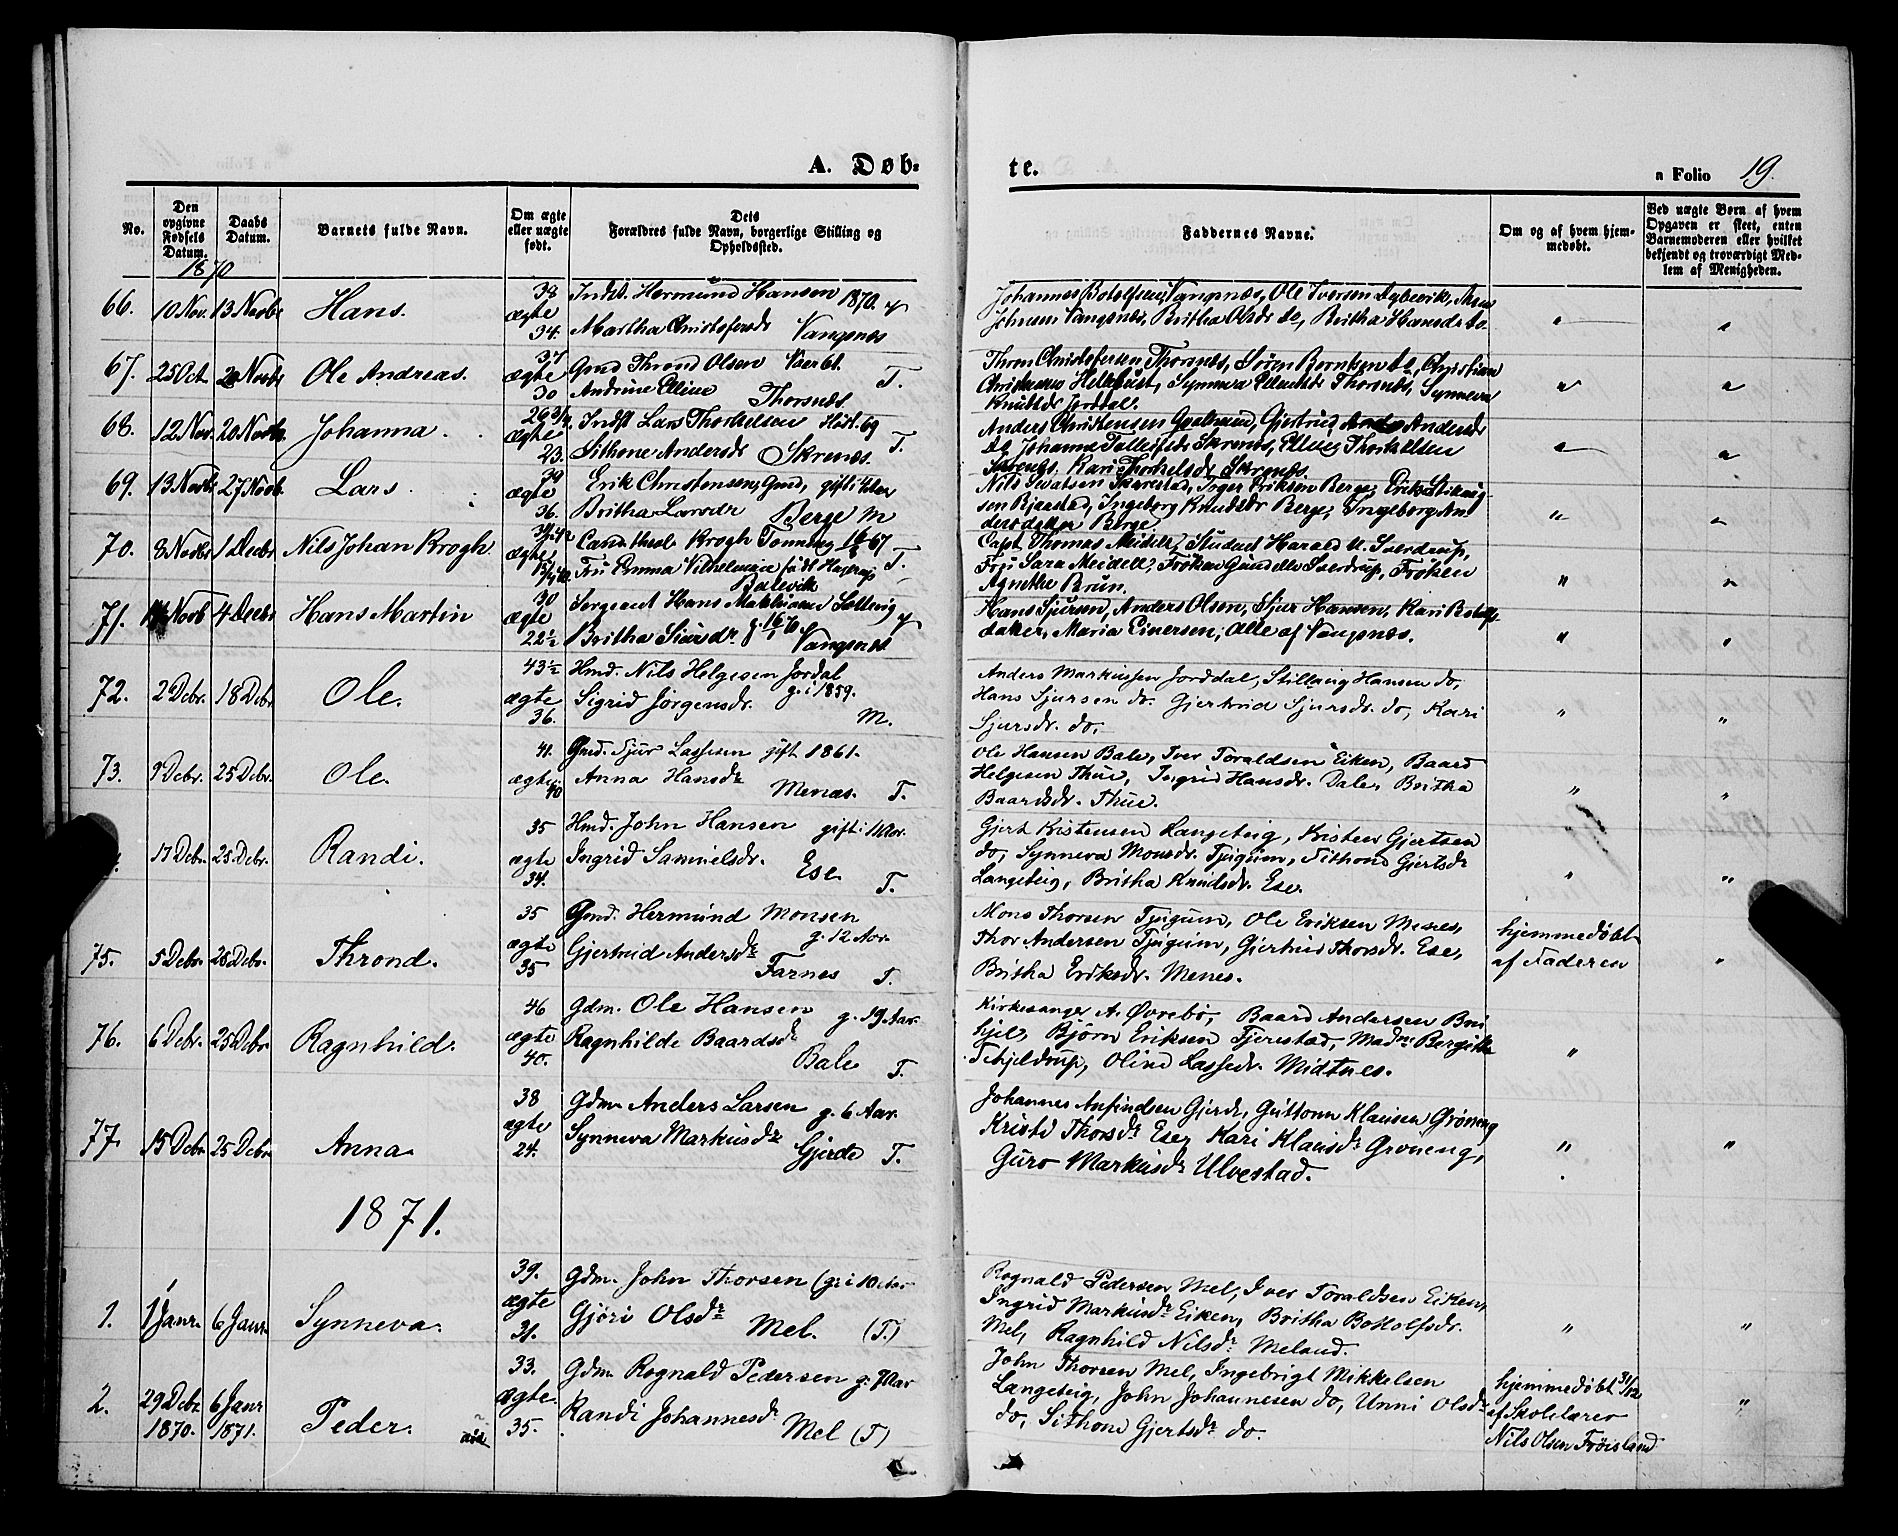 A. Døb=
te.
n Folio 19.
No.
Den opgivne Fødsels Datum.
Daabs Datum.
Barnets fulde Navn.
Om ægte eller uægte født.
Dets Forældres fulde Navn, borgerlige Stilling og Opholdssted.
Faddernes Navne.
Om og af hvem hjemmedøbt.
Ved uægte Børn af hvem Opgaven er skeet, enten Barnemoderen eller hvilket bekjendt og troværdigt Medlem af Menigheden.
1870
66. 10 Nov. 13 Novbr Hans. 38 ægte 34.
Indst. Hermund Hansen 1870.
Martha Christofersdr Vangsnæs
Johannes Botolfsen Vangsnæs, Ole Iversen
Johnsen Vangsnæs, Britha Olsdr do, Britha Hansdr do. "
67. 25 Oct. 20 Novbr Ole Andreas. 37 ægte 30
Gmd Thrond Olsen
Andrine Elline Thorsnæs T.
Thron Christofersen Thorsnæs, Christian
Synneva Thorsnæs, Synneva
Knudsdr Jorddal. "
68. 12 Nov. 20 Novbr. Johanna. 26 ægte 23.
Indst Lars Thorkelsen Høst. 69
Sithone Andersdr Skrenæs. T.
Anders Christensen Gjertrud Andersdr
do, Johanna Skrenæs, Thorkelsen
Skrenæs, Kari Thorkelsdr Skrenæs. "
69. 13 Novbr 27 Novb. Lars. 39 ægte 36.
Erik Christensen, Gmd, gift i
Britha Larsdr Berge M
Nils Eriksen Berge, Erik
Ingeborg Knudsdr Berge, Ingeborg An
dersdatter Berge "
70. 8 Novbr 1 Decbr Nils Johan Krogh. ægte
Cand. theol. Krogh Tonning 67 T.
Fru Emma Vilhelmine født
Balevik
Capt Thomas Meidell, Student Harald U. Sverdrup,
Fru Sara Meidell, Frøken Sverdrup, Frøken
Agnethe Brun. "
71. Novb 4 Decbr Hans Martin 30 ægte 22½
Sergeant Hans
Britha Siursdr. Vangsnæs
Hans Sjursen, Anders Olsen, Sjur Hansen, Kari Botolfs-
datter, Maria Einersen, Alle af Vangsnæs. "
72. 2 Debr. 18 Debr Ole. 43½ ægte 36.
Hmd. Nils Helgesen Jordal
Sigrid Jørgensdr. g. i 1859. M.
Anders Markussen Jorddal, Stillaug Hansen do,
Hans Sjursen do. Gjertrud Sjursdr. do, Kari
Sjursdr. do, "
73. 9 Debr. 25 Debr. Ole. 41. ægte 40
Gmd. Sjur Lassesen gift 1861.
Anna Hansdr Menæs. T.
Ole Hansen Bale, Iver Toraldsen Eiken, Baard
Helgesen Thue, Ingrid Hansdr. Dale, Britha
Baardsdr. Thue. "
17 Debr. 25 Debr. Randi. 35 ægte 34.
Hmd. John Hansen gift i 11 Aar.
Ingrid Samuelsdr. Ese T.
Gjert Kristensen Langeteig, Kristen Gjertsen
do, Synneva Monsdr. Tjugum, Sithone Gjertsdr
Langeteig, Britha Knudsdr. Ese. "
75. 5 Debr. 26 Debr. Thrond. 35 ægte 35
Gmd. Hermund Monsen g. 12 Aar.
Gjertrud Andersdr Farnes T.
Mons Thorsen Tjugum, Ole Eriksen Menes,
Thor Andersen Tjugum, Gjertrud Thorsdr. Ese,
Britha Eriksdr. Menes.
hjemmedøbt
af Faderen "
76. 6 Debr. 25 Debr. Ragnhild. 46 ægte 40.
Gdm. Ole Hansen g. 19 Aar.
Ragnhilde Baardsdr Bale T.
Kirkesanger A. Øvrebø, Baard Andersen
Bjørn Eriksen Tjerestad, Madme Bergitte
Schjeldrup, Oline Lassedr. Midtnes. "
77. 15 Debr 25 Debr. Anna. 38 ægte 24.
Gdm. Anders Larsen g. 6 Aar.
Synneva Markusdr Gjerde T.
Johannes Anfindsen Gjerde, Guttorm Klausen Grøneng
Kristi Thorsdr Ese, Kari Klausdr Grøneng,
Guro Markusdr Ulvestad. "
1871.
1. 1 Janr. 6 Janr. Synneva. 39. ægte 31.
Gdm. John Thorsen (g. i 10 Aar
Gjøri Olsdr Mel. (T.)
Rognald Pedersen Mel, Iver Toraldsen Eiken,
Ingrid Markusdr Eiken, Britha Botolfsdr.
Mel, Ragnhild Nilsdr Meland. "
2. 29 Debr 1870. 6 Janr 1871. Peder. 33. ægte 35.
Gdm. Rognald Pedersen g. 7 Aar
Randi Johannesdr Mel (T.)
John Thorsen Mel, Ingebrigt Mikkelsen
Langeteig, John Johannesen do, Unni Olsdr
do, Sithone Gjertsdr do.
hjemmedøbt 31/12
af Skolelærer
Nils Olsen Frøisland "